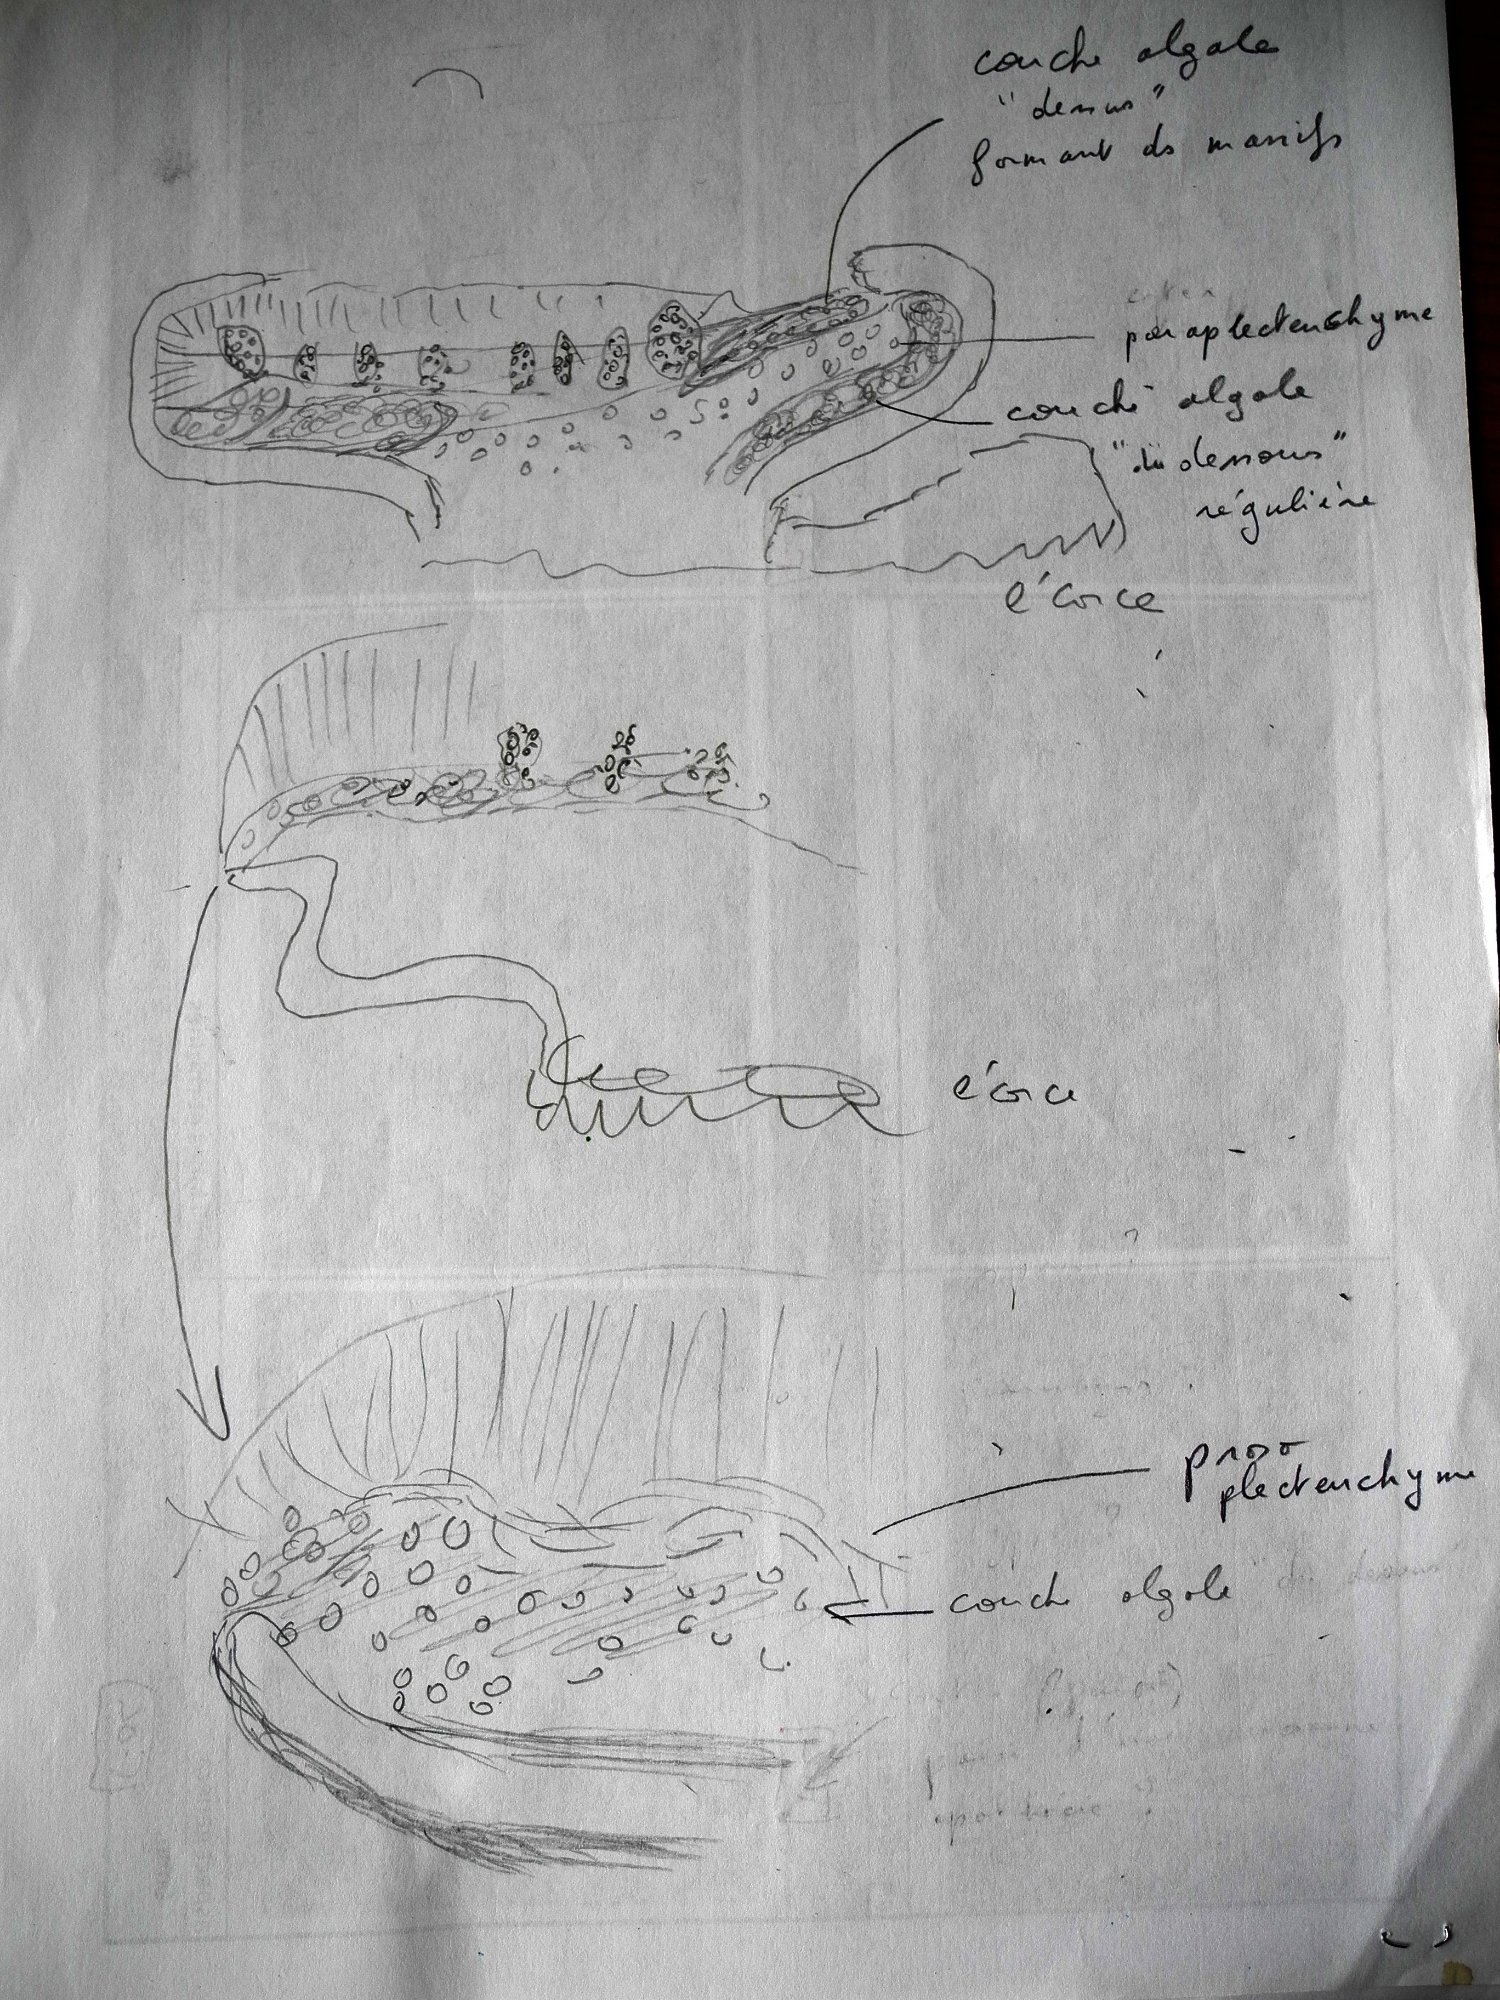 couche algale
"dessus"
formant ds massifs
paraplectenchyme
couche algale
"du dessous"
régulière
écorce
écorce
proso
plectenchyme
couche algale